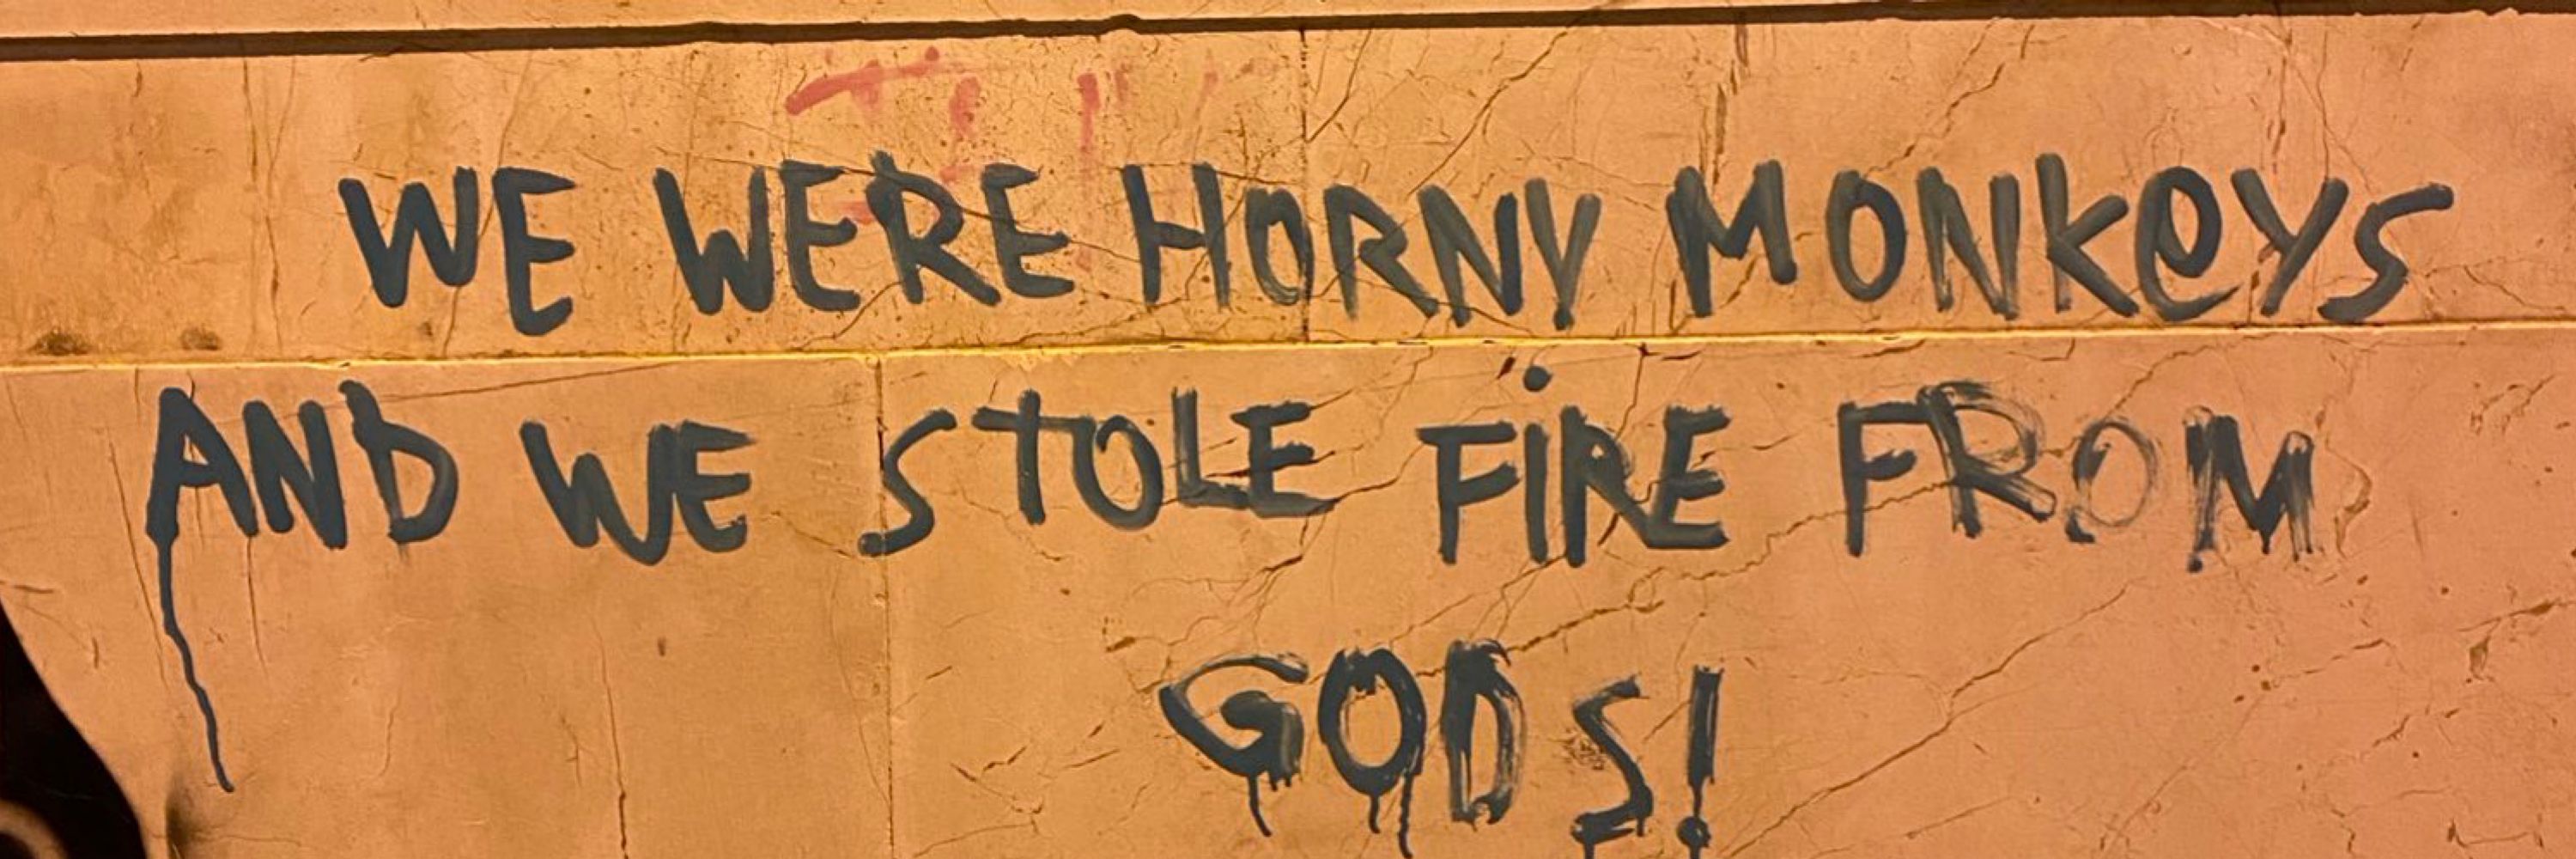 WE WERE HORNY MONKeYS
AND WE STOLE FiRE FROM
GODS!